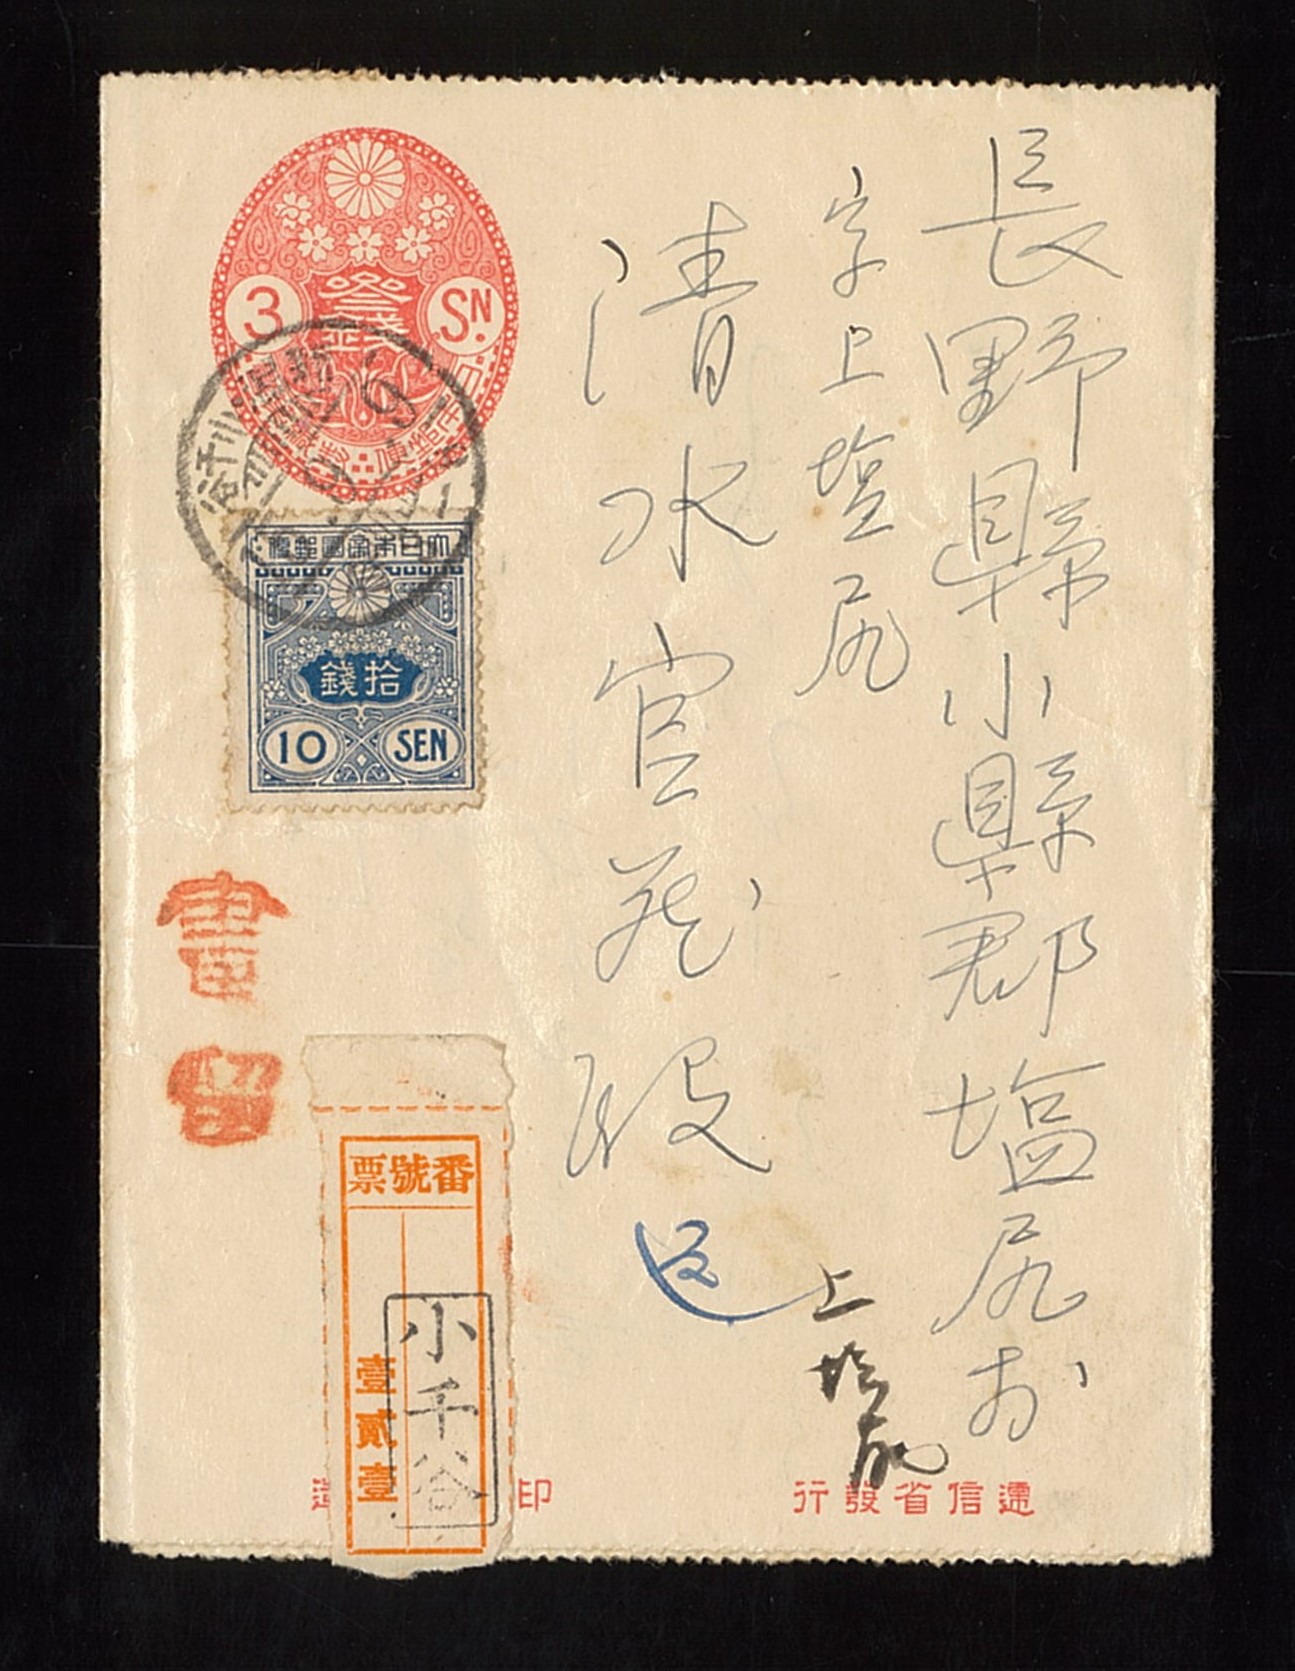 長野縣小縣郡塩尻村
字上塩尻
清水官藏殿
上塩尻
3
参錢
SN
小千谷
大日本帝國郵便
拾錢
10 SEN
書留
番號票
壹貳壹
小千谷
遞信省發行
印
造